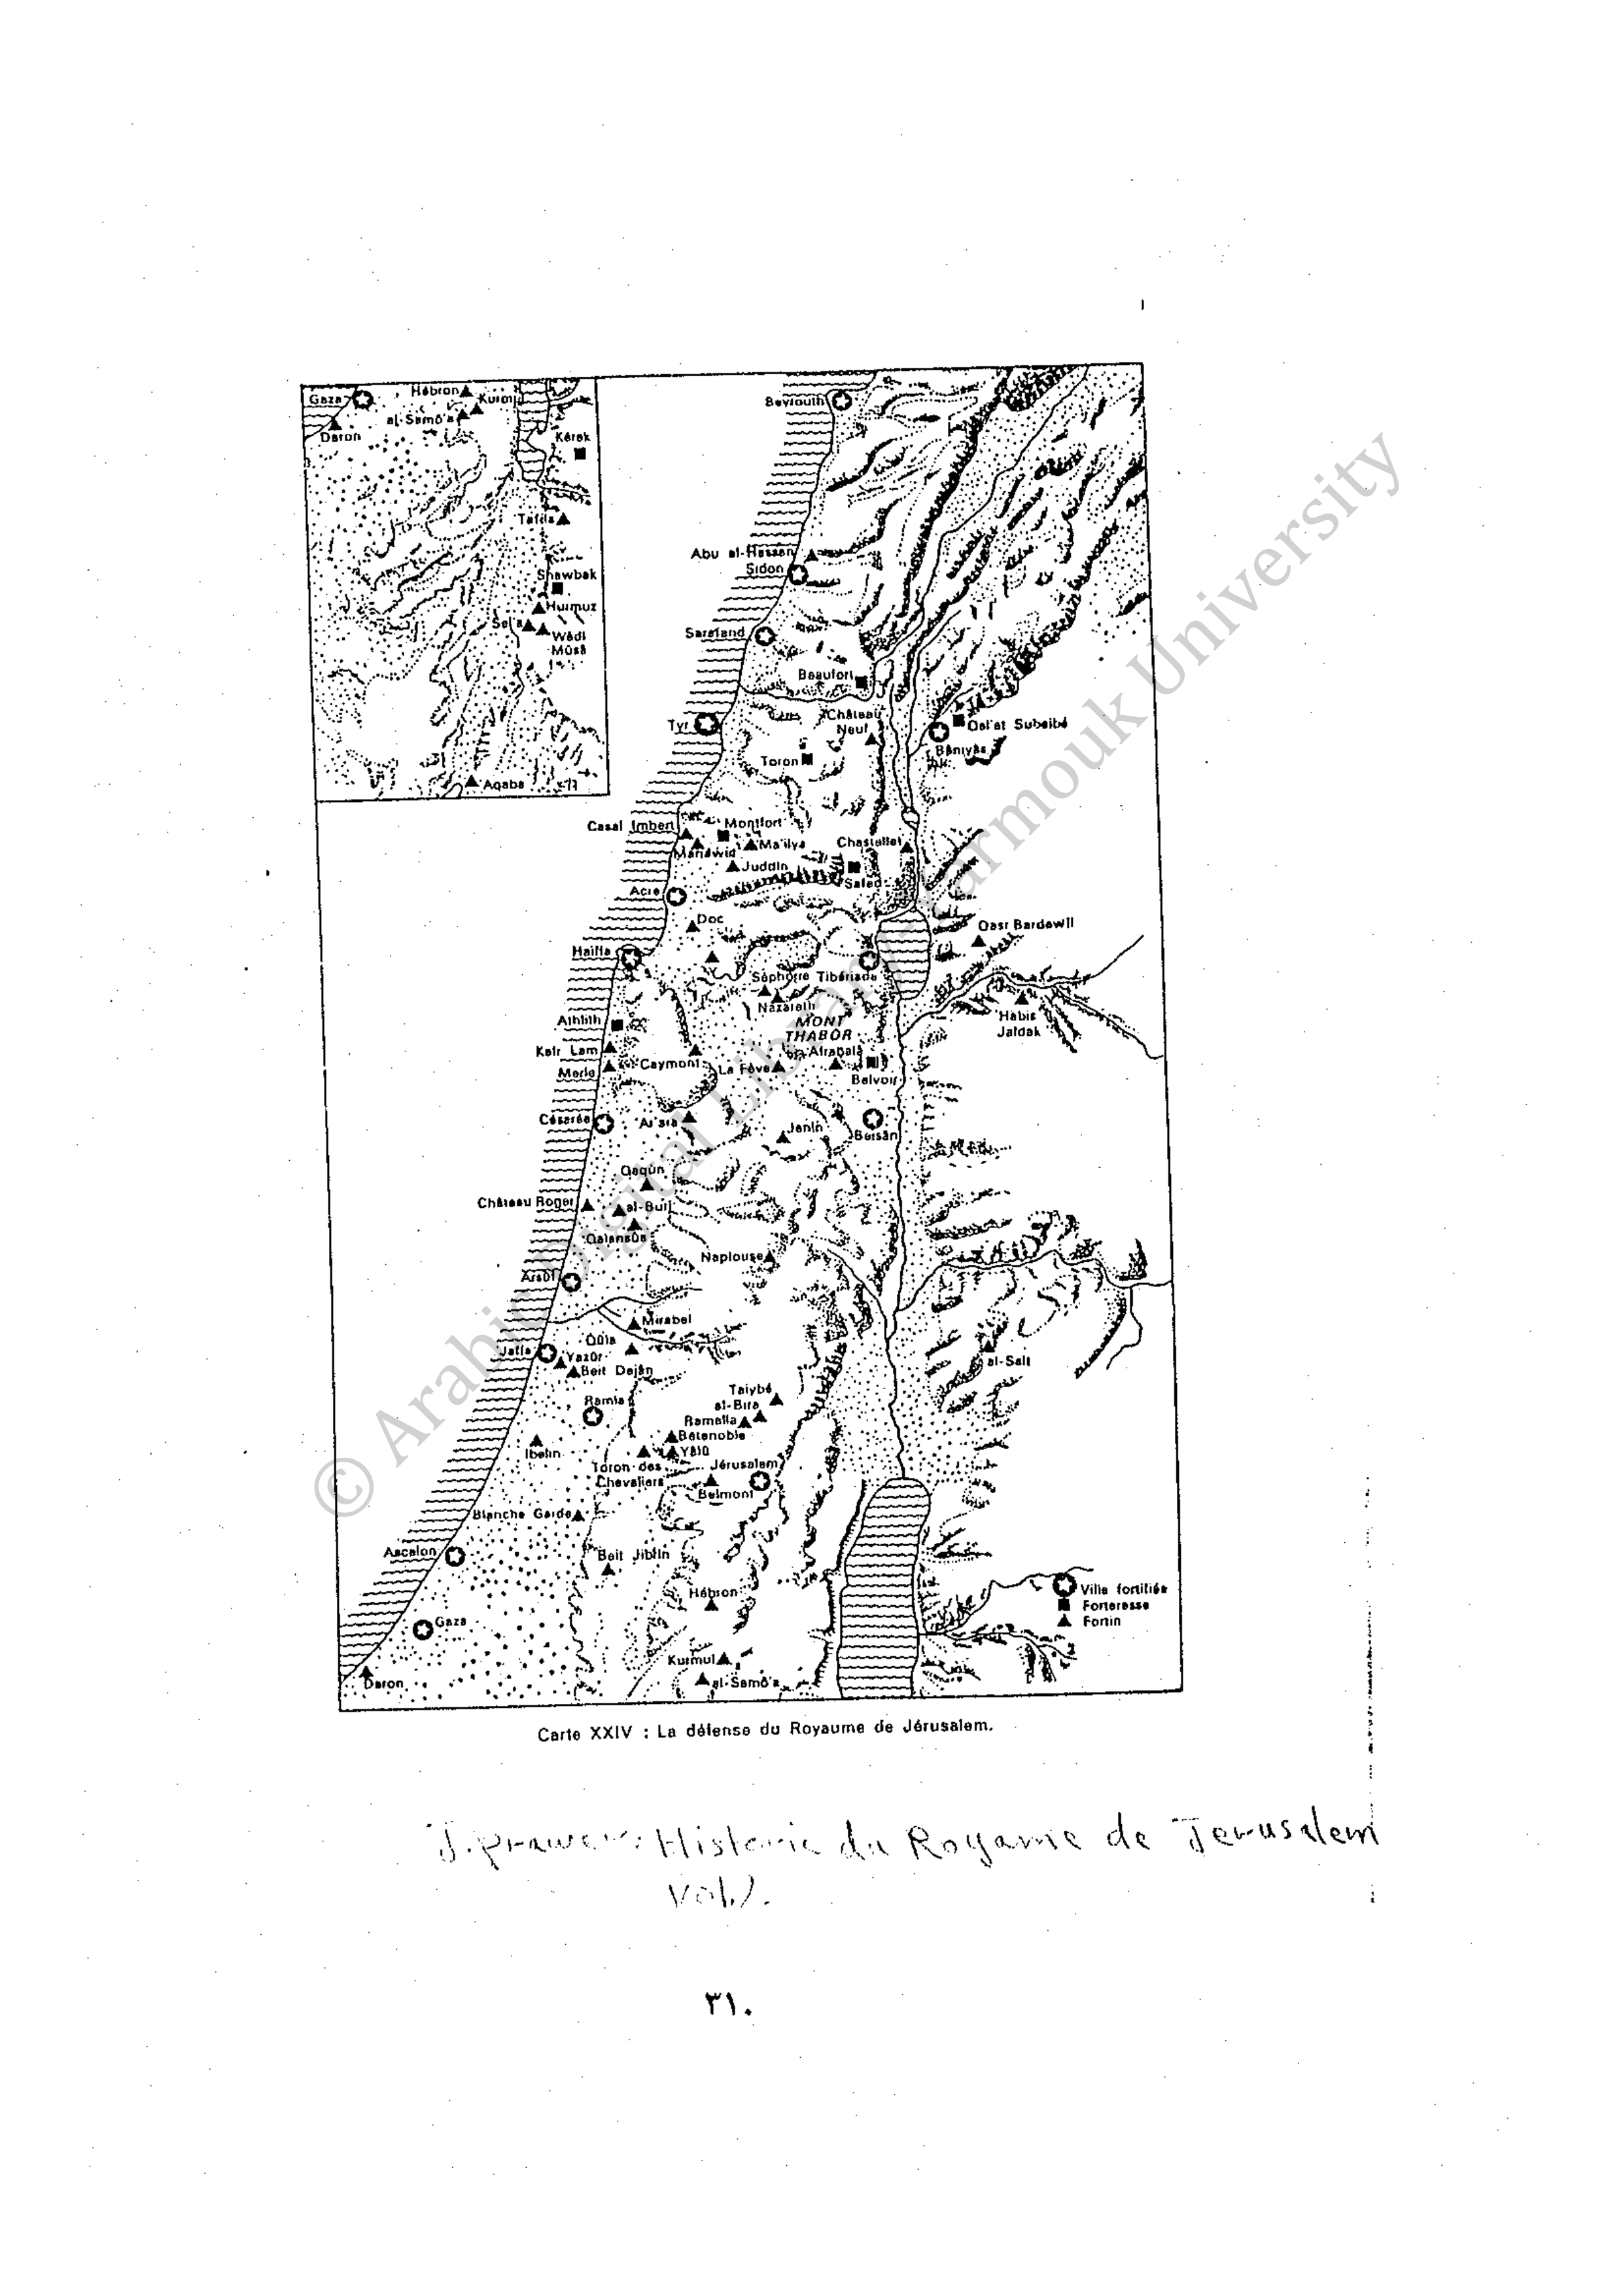 Gaza
Hébron
Kurmul
al-Samô'a
Daron
Kérak
Tafila
Shawbak
Hurmuz
Sel'a
Wâdi
Mûsâ
Aqaba
Beyrouth
Abu al-Hassan
Sidon
Sarafand
Beaufort
Tyr
Château
Neuf
Qal'at Subeibé
Bâniyâs
Toron
Casal Imbert
Montfort
Ma'ilya
Manawid
Juddin
Chastellet
Safed
Acre
Doc
Qasr Bardawil
Haiffa
Séphorie
Tibériade
Nazareth
MONT
THABOR
Habis
Jaldak
Athlith
Kafr Lam
Merle
Caymont
La Fève
Afrabala
Belvoir
Césarée
Ar'ara
Jenin
Beisân
Qâqûn
Château Roger
al-Burj
Qalansûa
Naplouse
Arsûf
Mirabel
Jaffa
Yazûr
Beit Dejân
al-Salt
Ramla
Taiybé
al-Bira
Ramalla
Betenoble
Yâlû
Ibelin
Toron des
Chevaliers
Jérusalem
Belmont
Blanche Garde
Ascalon
Beit Jibrin
Hébron
Gaza
Kurmul
al-Samô'a
Daron
Ville fortifiée
Forteresse
Fortin
Carte XXIV : La défense du Royaume de Jérusalem.
J. prawer: Historie du Royame de Jerusalem
٣١٠
© Arabic Digital Library-Yarmouk University